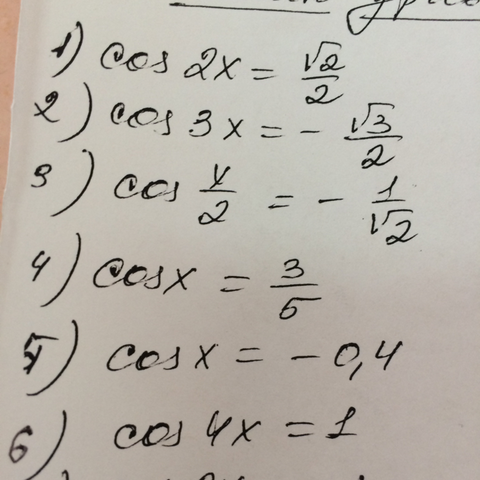 1) cos 2x = √2/2
2) cos 3x = - √3/2
3) cos x/2 = - 1/√2
4) cos x = 3/5
5) cos x = - 0,4
6) cos 4x = 1